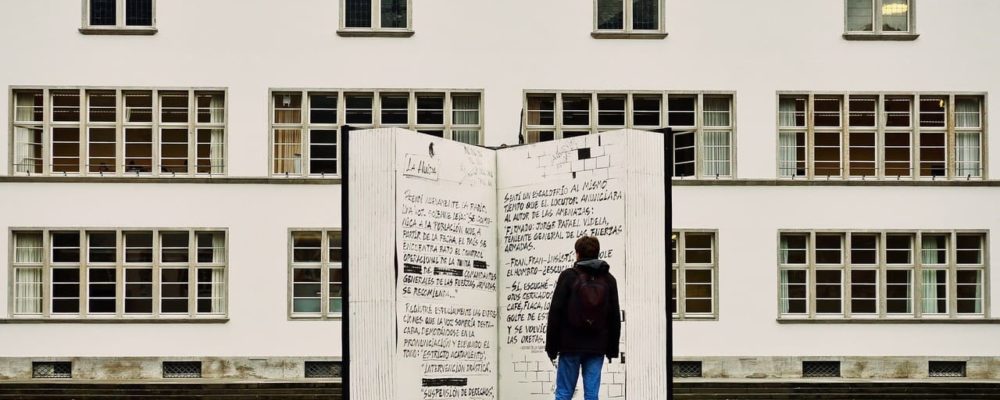 LA HUIDA
PRENDÍ NUEVAMENTE LA RADIO,
UNA VOZ SOLEMNE LEÍA: "SE COMU-
NICA A LA POBLACIÓN QUE A
PARTIR DE LA FECHA, EL PAÍS SE
ENCUENTRA BAJO EL CONTROL
OPERACIONAL DE LA JUNTA
DE COMANDANTES
GENERALES DE LAS FUERZAS ARMADAS
SE RECOMIENDA..."
REGISTRÉ ESPECIALMENTE LAS EXPRE-
SIONES QUE LA VOZ SOMBRÍA DESTA-
CABA, DEMORÁNDOSE EN LA
PRONUNCIACIÓN Y ELEVANDO EL
TONO: "ESTRICTO ACATAMIENTO",
"INTERVENCIÓN DRÁSTICA",
"SUSPENSIÓN DE DERECHOS",
SENTÍ UN ESCALOFRÍO AL MISMO
TIEMPO QUE EL LOCUTOR ANUNCIABA
AL AUTOR DE LAS AMENAZAS:
"FIRMADO: JORGE RAFAEL VIDELA,
TENIENTE GENERAL DE LAS FUERZAS
ARMADAS.
-FRAN, FRAN-INSISTÍ
EL HOMBRE-¿ESCU
-SÍ, ESCUCHÉ-
OJOS CERRADOS
CAFÉ, FLACA, LO
GOLPE DE ESTA
Y SE VOLVIÓ
LAS OREJAS.